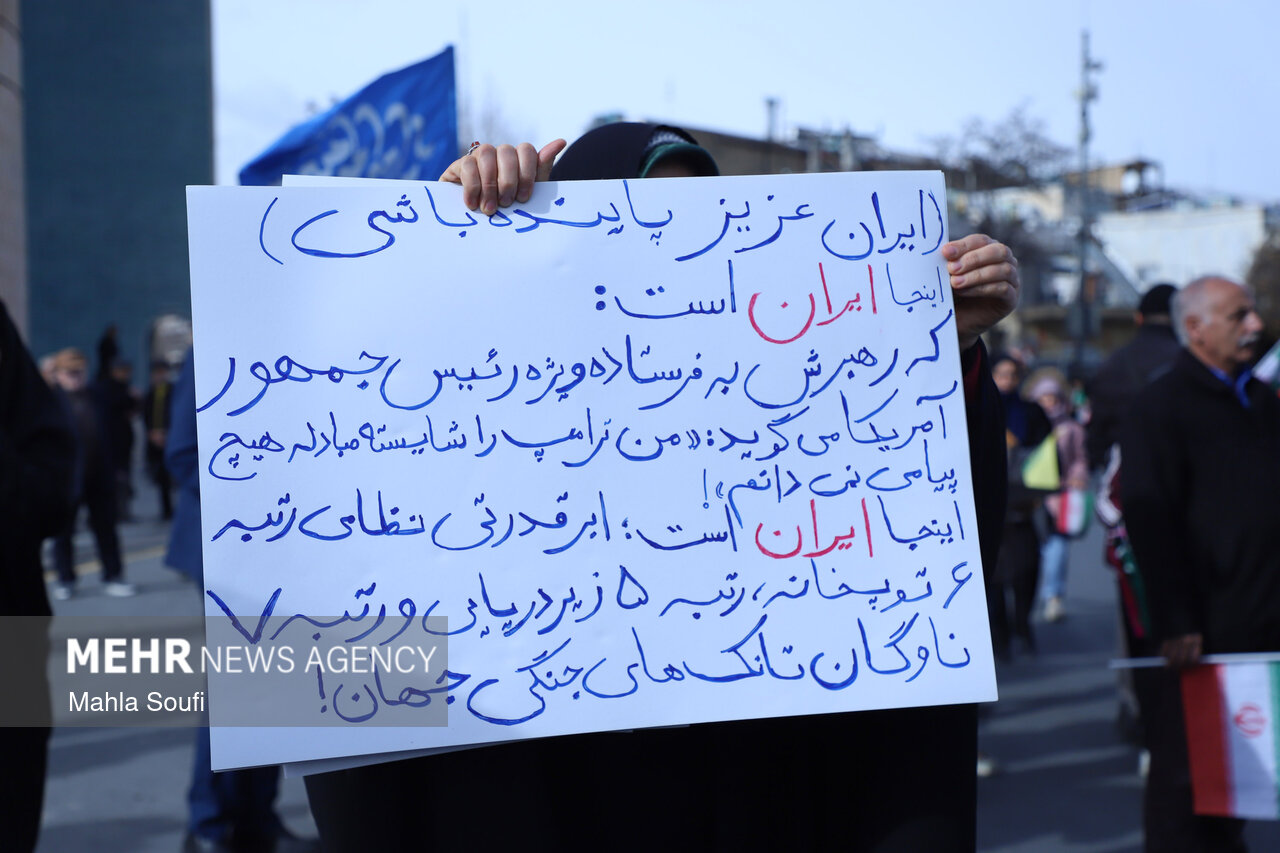 (ایران عزیز پاینده باشی)
اینجا ایران است:
که رهبرش به فرستاده ویژه رئیس جمهور
آمریکا می گوید: «من ترامپ را شایسته مبادله هیچ
پیامی نمی دانم»!
اینجا ایران است؛ ابرقدرتی نظامی رتبه
۶ توپخانه، رتبه ۵ زیردریایی و رتبه ۷
ناوگان تانک های جنگی جهان!
MEHR NEWS AGENCY
Mahla Soufi